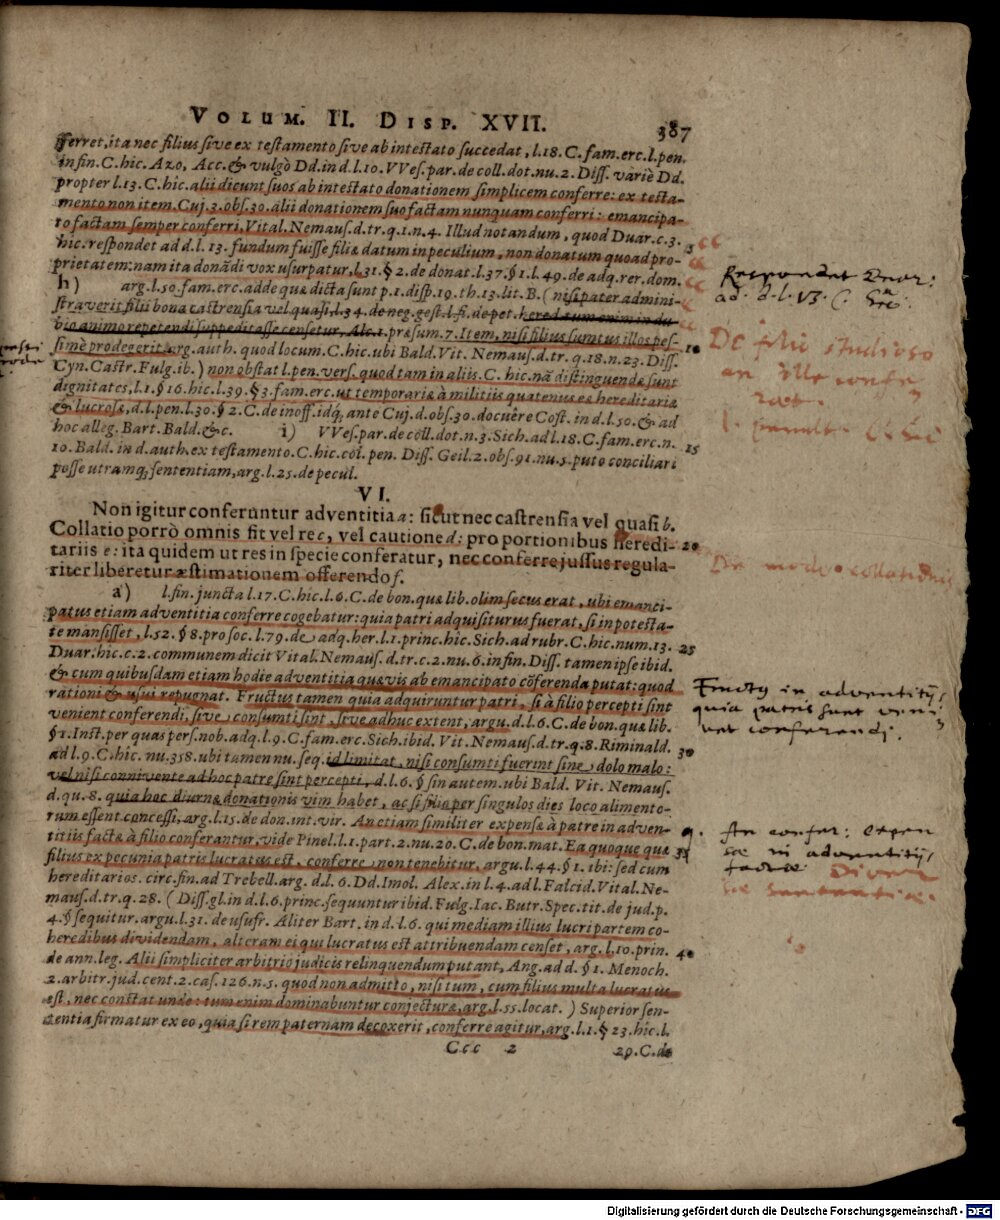 VOLUM. II. DISP. XVII.
387
fferret, ita nec filius sive ex testamento sive ab intestato succedat, l.18. C. fam. erc. l. pen.
in fin. C. hic. Azo, Acc. & vulgò Dd. in d. l. 10. VVes. par. de coll. dot. nu. 2. Diss. variè Dd.
propter l. 13. C. hic. alii dicunt suos ab intestato donationem simplicem conferre: ex testa-
mento non item. Cuj. 3. obs. 30. alii donationem suo factam nunquam conferri: emancipa-
to factam semper conferri, Vital. Nemaus. d. tr. q. 1. n. 4. Illud notandum, quod Duar. c. 3.
hic. respondet ad d. l. 13. fundum fuisse filiæ datum in peculium, non donatum quoad pro-
prietatem: nam ita donãdi vox usurpatur, l. 31. § 2. de donat. l. 37. § 1. l. 49. de adq. rer. dom.
h) arg. l. 50. fam. erc. adde quæ dicta sunt p. 1. disp. 19. th. 13. lit. B. ( nisi pater admini-
straverit filii bona castrensia vel quasi, l. 34. de neg. gest. l. fi. de pet. hered. tum enim in du-
bio animo repetendi suppeditasse censetur, Alc. 1. præsum. 7. Item, nisi filius sumtus illos pes-
simè prodegerit, arg. auth. quod locum. C. hic. ubi Bald. Vit. Nemaus. d. tr. q. 18. n. 23. Diss.
Cyn. Castr. Fulg. ib. ) non obstat l. pen. vers. quod tam in aliis. C. hic. nã distinguendæ sunt
dignitates, l. 1. § 16. hic. l. 39. § 3. fam. erc. ut temporariæ à militiis quatenus eæ hereditariæ
& lucrosæ, d. l. pen. l. 30. § 2. C. de inoff. idq; ante Cuj. d. obs. 30. docuêre Cost. in d. l. 50. & ad
hoc alleg. Bart. Bald. &c. i) VVes. par. de coll. dot. n. 3. Sich. ad l. 18. C. fam. erc. n.
10. Bald. in d. auth. ex testamento. C. hic. cõl. pen. Diss. Geil. 2. obs. 91. nu. 5. puto conciliari
posse utramq; sententiam, arg. l. 25. de pecul.
VI.
Non igitur conferuntur adventitia a: sicut nec castrensia vel quasi b.
Collatio porrò omnis fit vel re c, vel cautione d: pro portionibus heredi-
tariis e: ita quidem ut res in specie conferatur, nec conferre jussus regula-
riter liberetur æstimationem offerendo f.
a) l. fin. juncta l. 17. C. hic. l. 6. C. de bon. quæ lib. olim secus erat, ubi emanci-
patus etiam adventitia conferre cogebatur: quia patri adquisiturus fuerat, si in potesta-
te mansisset, l. 52. § 8. pro soc. l. 79. de adq. her. l. 1. princ. hîc. Sich. ad rubr. C. hic. num. 13.
Duar. hic. c. 2. communem dicit Vital. Nemaus. d. tr. c. 2. nu. 6. in fin. Diss. tamen ipse ibid.
& cum quibusdam etiam hodie adventitia quævis ab emancipato cõferenda putat: quod
rationi & usui repugnat. Fructus tamen quia adquiruntur patri, si à filio percepti sint
venient conferendi, sive consumti sint, sive adhuc extent, argu. d. l. 6. C. de bon. quæ lib.
§ 1. Inst. per quas pers. nob. adq. l. 9. C. fam. erc. Sich. ibid. Vit. Nemaus. d. tr. q. 8. Riminald.
ad l. 9. C. hic. nu. 358. ubi tamen nu. seq. id limitat, nisi consumti fuerint sine dolo malo:
vel nisi connivente ad hoc patre sint percepti, d. l. 6. § sin autem. ubi Bald. Vit. Nemaus.
d. qu. 8. quia hoc diurnæ donationis vim habet, ac si filio per singulos dies loco alimento-
rum essent concessi, arg. l. 15. de don. int. vir. An etiam similiter expensæ à patre in adven-
titiis factæ à filio conferantur, vide Pinel. l. 1. part. 2. nu. 20. C. de bon. mat. Ea quoque quæ
filius ex pecunia patris lucratus est, conferre non tenebitur, argu. l. 44. § 1. ibi: sed cum
hereditarios. circ. fin. ad Trebell. arg. d. l. 6. Dd. Imol. Alex. in l. 4. ad l. Falcid. Vital. Ne-
maus. d. tr. q. 28. ( Diss. gl. in d. l. 6. princ. sequuntur ibid. Fulg. Iac. Butr. Spec. tit. de jud. p.
4. § sequitur. argu. l. 31. de usufr. Aliter Bart. in d. l. 6. qui mediam illius lucri partem co-
heredibus dividendam, alteram ei qui lucratus est attribuendam censet, arg. l. 10. prin.
de ann. leg. Alii simpliciter arbitrio judicis relinquendum putant, Ang. ad d. § 1. Menoch.
2. arbitr. jud. cent. 2. cas. 126. n. 5. quod non admitto, nisi tum, cum filius multa lucratus
est, nec constat unde: tum enim dominabuntur conjecturæ, arg. l. 55. locat. ) Superior sen-
tentia firmatur ex eo, quia si rem paternam decoxerit, conferre agitur, arg. l. 1. § 23. hic. l.
Ccc 2
20. C. de
5
10
15
20
25
30
35
40
Respondet Duar:
ad. d. l. 13. C.
De filio studioso
an ille confe
rat.
De modo collationis
Fructus in adventitijs
quia patris sunt veni
unt conferendj.
q. An confer: expen
sæ in adventitijs
factæ Diver
sæ sententiæ.
Digitalisierung gefördert durch die Deutsche Forschungsgemeinschaft - DFG